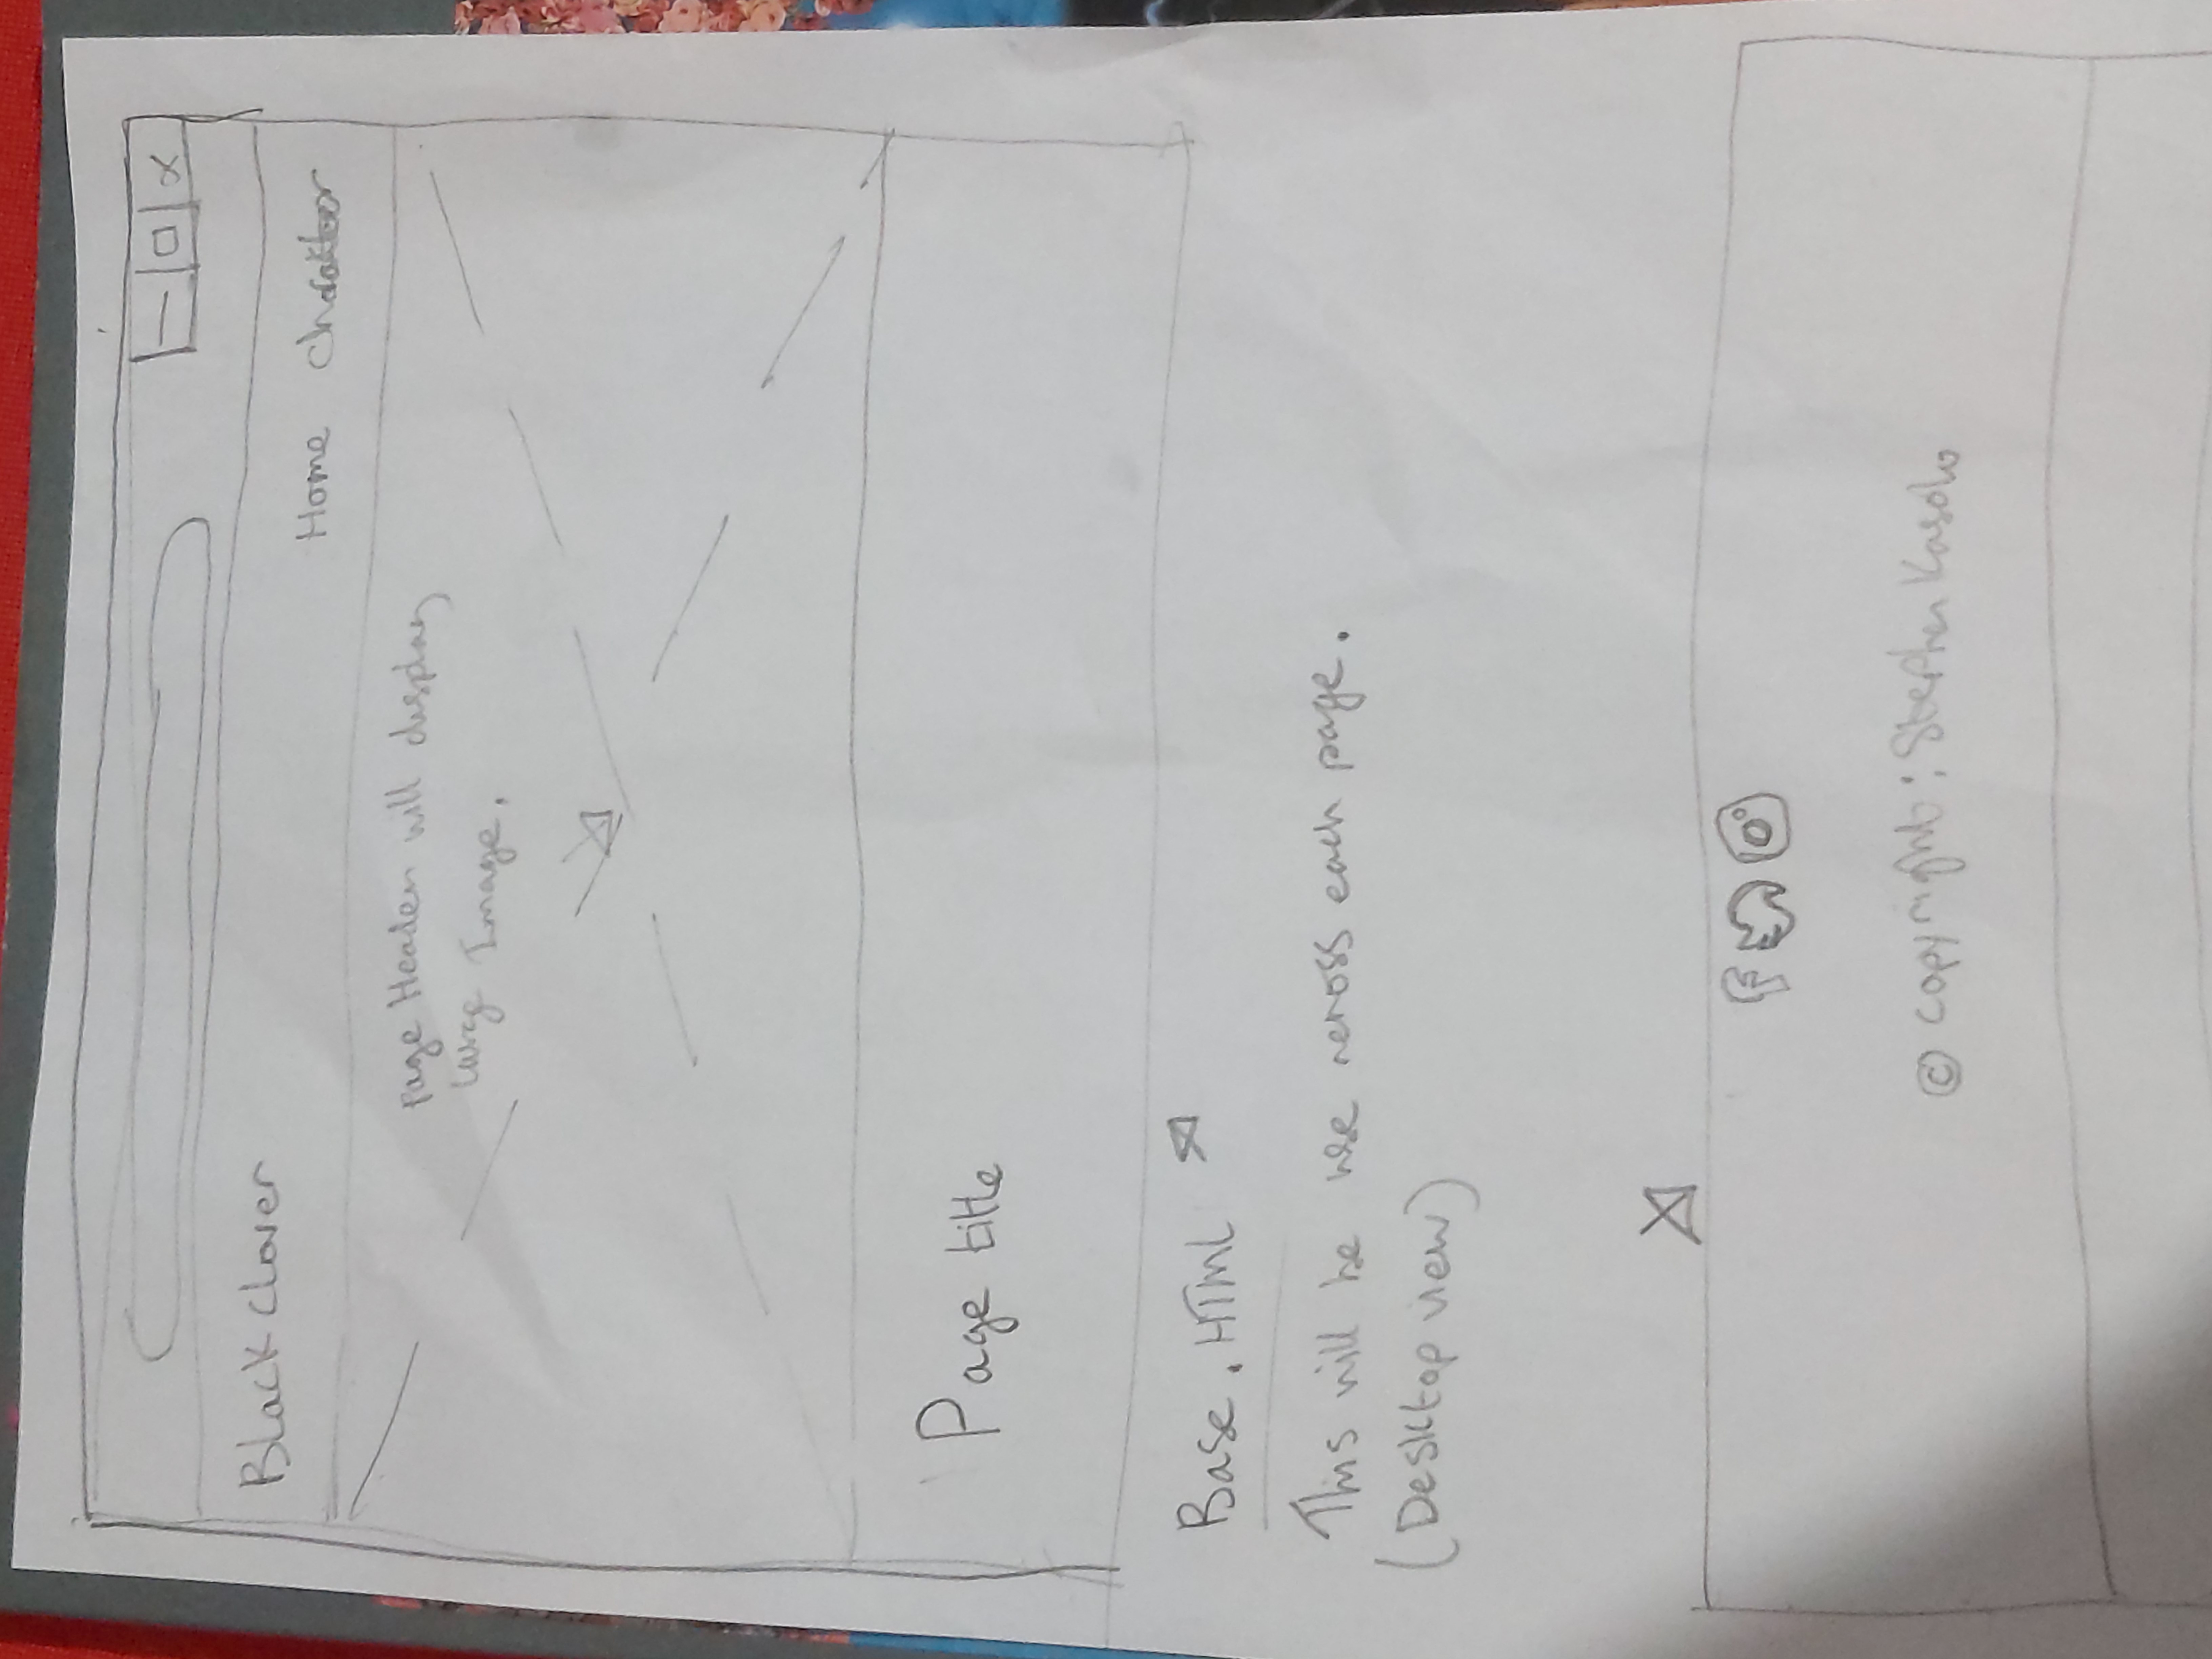 Black clover
Home Charakter
page Header will display
large Image.
Page title
Base.HTml
This will be use across each page.
(Desktop view)
© copyright: Stephen Kasolo